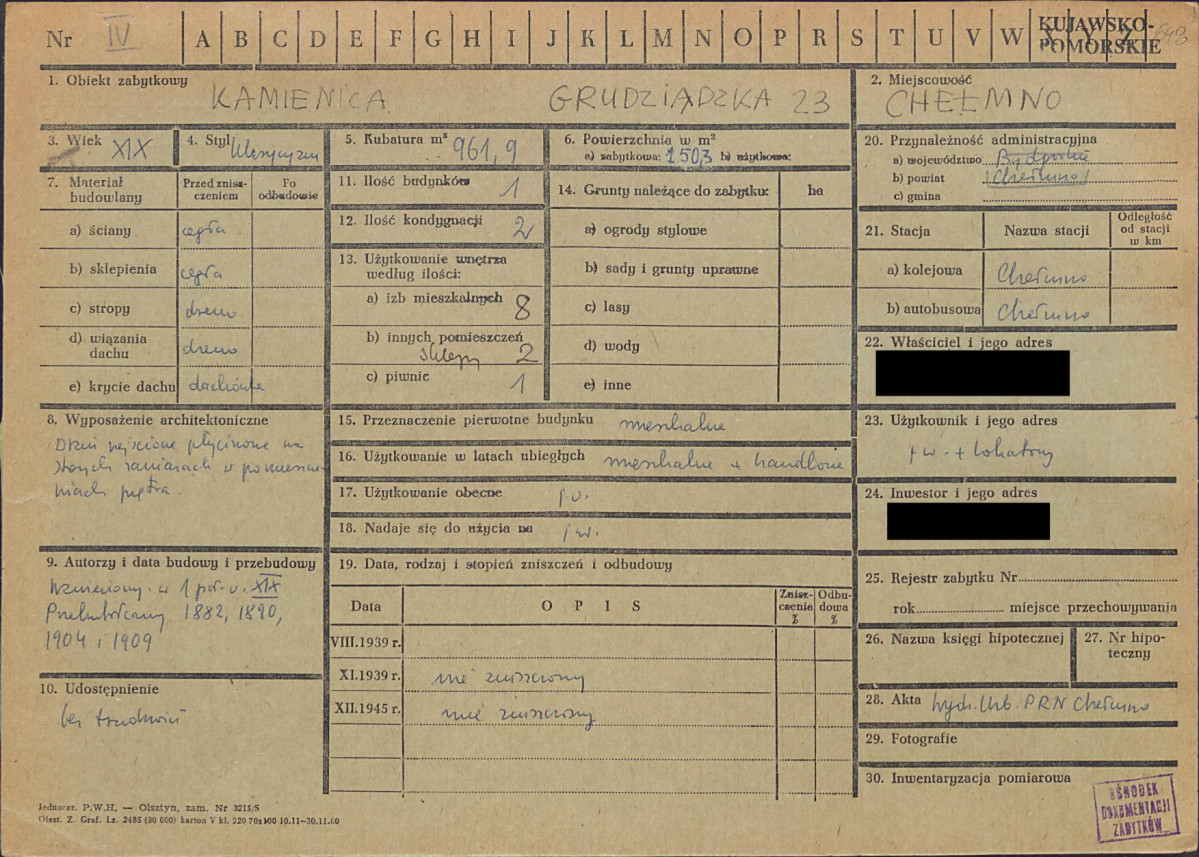 Nr IV A B C D E F G H I J K L M N O P R S T U V W X Y Z
KUJAWSKO-
POMORSKIE
1. Obiekt zabytkowy
KAMIENICA GRUDZIĄDZKA 23
2. Miejscowość
CHEŁMNO
3. Wiek XIX
4. Styl klasycyzm
5. Kubatura m³ 961,9
6. Powierzchnia w m²
a) zabytkowa: 150,3 b) użytkowa:
20. Przynależność administracyjna
a) województwo Bydgoskie
b) powiat Chełmno
c) gmina
7. Materiał
budowlany
Przed znisz-
czeniem
Po
odbudowie
a) ściany cegła
b) sklepienia cegła
c) stropy drewno
d) wiązania
dachu drewno
e) krycie dachu dachówka
11. Ilość budynków 1
12. Ilość kondygnacji 2
13. Użytkowanie wnętrza
według ilości:
a) izb mieszkalnych 8
b) innych pomieszczeń
sklepy 2
c) piwnic 1
14. Grunty należące do zabytku: ha
a) ogrody stylowe
b) sady i grunty uprawne
c) lasy
d) wody
e) inne
21. Stacja Nazwa stacji
Odległość
od stacji
w km
a) kolejowa Chełmno
b) autobusowa Chełmno
22. Właściciel i jego adres
8. Wyposażenie architektoniczne
Drzwi wejściowe płycinowe na
starych zawiasach w pomieszcze-
niach piętra.
15. Przeznaczenie pierwotne budynku mieszkalne
16. Użytkowanie w latach ubiegłych mieszkalne + handlowe
17. Użytkowanie obecne j.w.
18. Nadaje się do użycia na j.w.
23. Użytkownik i jego adres
j.w. + lokatorzy
24. Inwestor i jego adres
9. Autorzy i data budowy i przebudowy
Wzniesiony w 1 poł. w. XIX
Przebudowany 1882, 1890,
1904 i 1909
10. Udostępnienie
bez trudności
19. Data, rodzaj i stopień zniszczeń i odbudowy
Data OPIS
Znisz-
czenia
%
Odbu-
dowa
%
VIII.1939 r.
XI.1939 r. nie zniszczony
XII.1945 r. nie zniszczony
25. Rejestr zabytku Nr
rok miejsce przechowywania
26. Nazwa księgi hipotecznej
27. Nr hipo-
teczny
28. Akta Wydz. Urb. PRN Chełmno
29. Fotografie
30. Inwentaryzacja pomiarowa
OŚRODEK
DOKUMENTACJI
ZABYTKÓW
Jednoraz. P.W.H. — Olsztyn, zam. Nr 3215/S
Olszt. Z. Graf. Lz. 2485 (30 000) karton V kl. 220 70x100 10.11—30.11.60